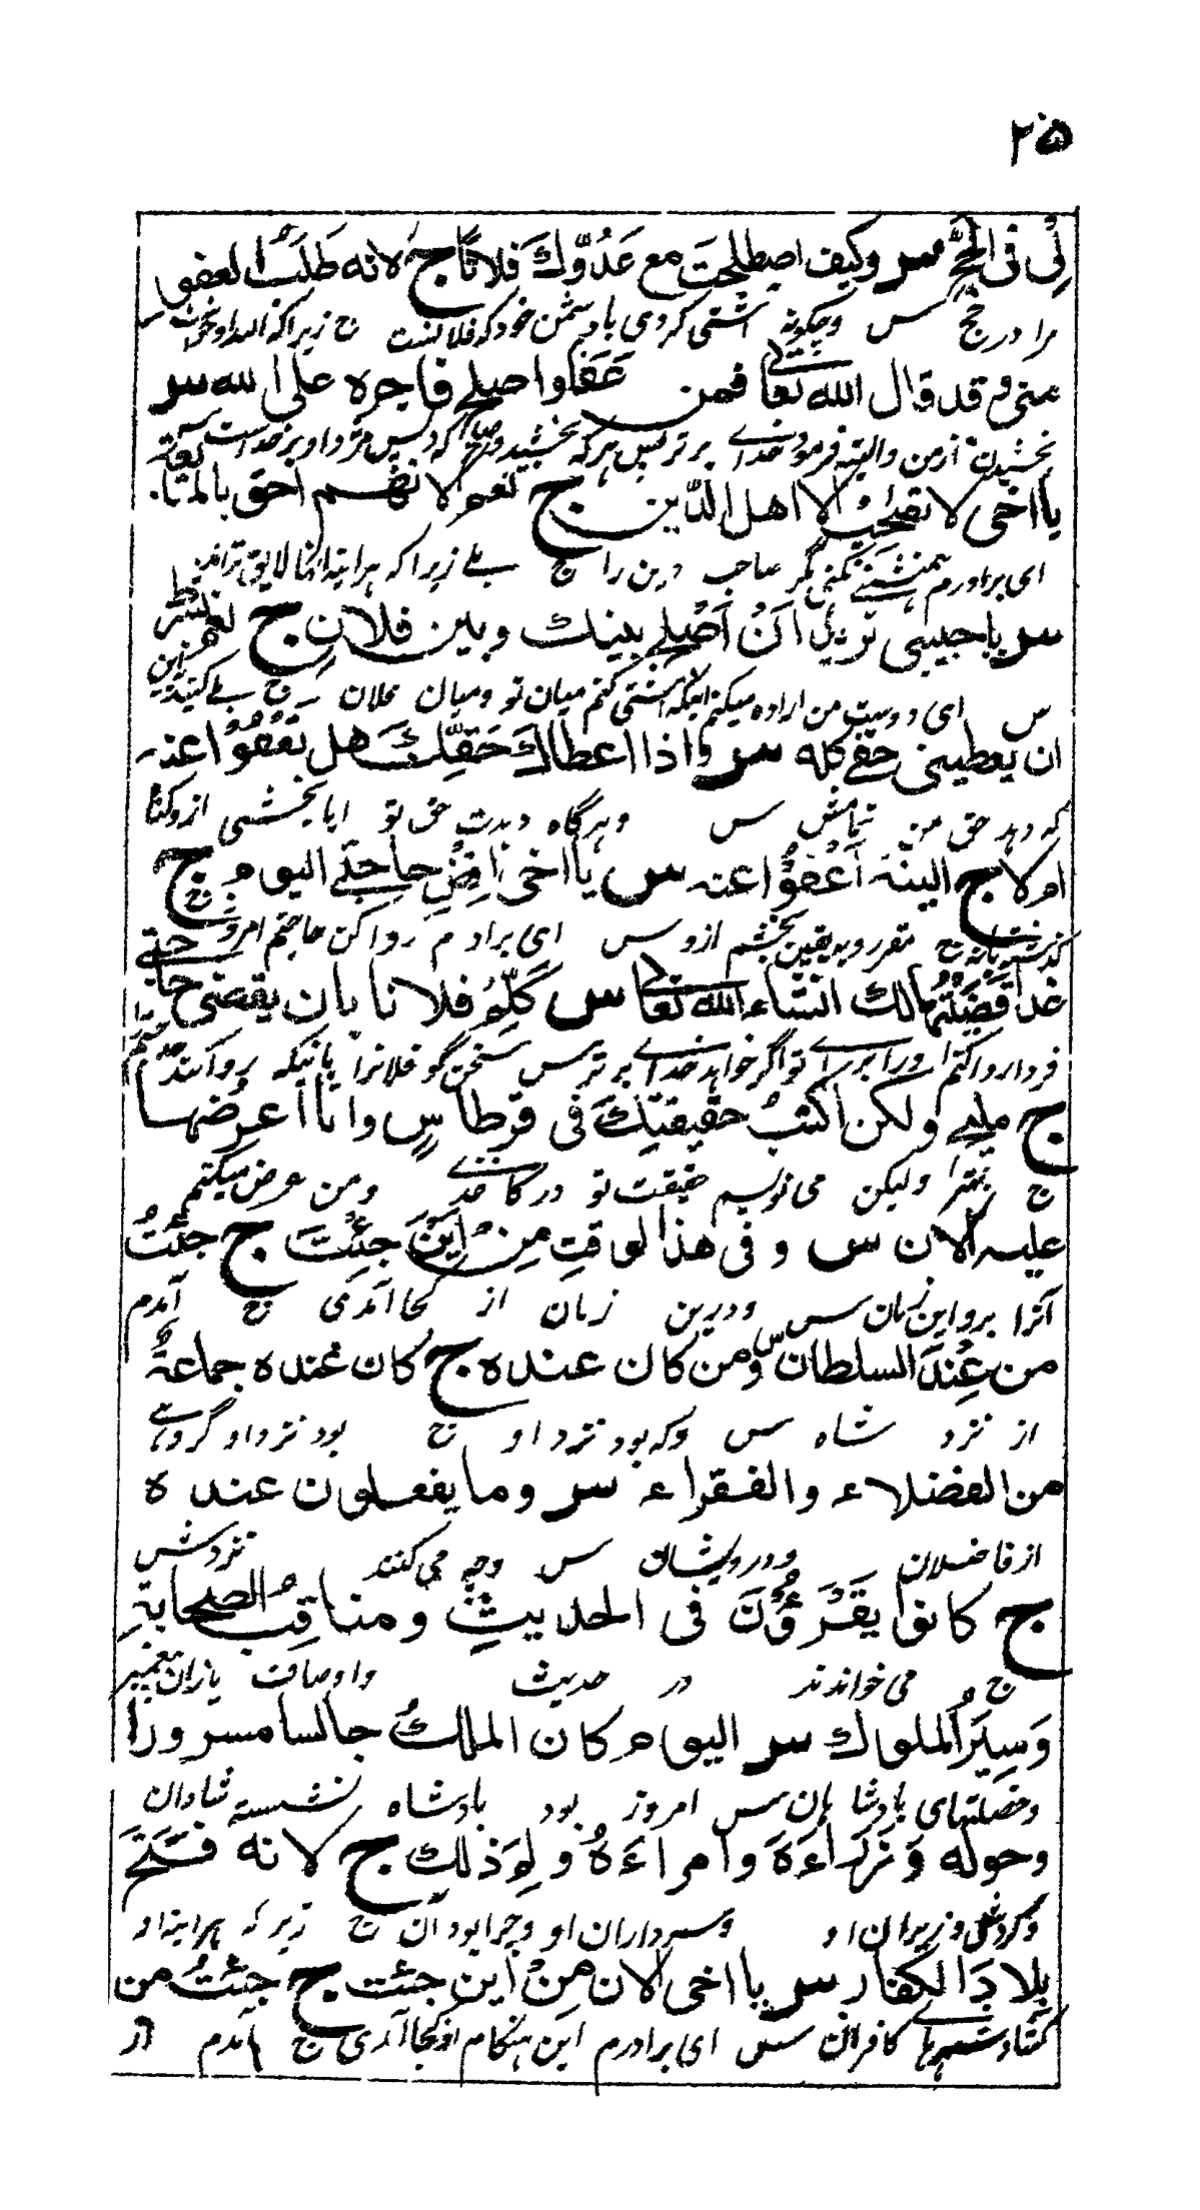 ٢٥
لِی فی الحجِّ س وکیف اصطلحتَ مع عَدُوِّكَ فلاناً ج لانه طَلَبَ العفو
مرا در حج س وچگونه آشتی کردی بادشمن خود که فلانست ج زیراکه او خواست
منی وقد قال الله تعالی فمن عَفَا واصلح فاجره علی الله س
بخشیدن ازمن والبته فرمود خدای برتر پس هرکه بخشید وصلح کرد پس مزد او بر خداست
یا اخی لا تصاحب الا اهل الدّین ج نعم لانهم احق بالمتابعة
ای برادرم همنشینی نکنی مگر صاحب دین را ج بلے زیراکه هرآینه آنها لایق تراند
س یا حبیبی نرید اَنْ اُصْلِحَ بینك وبین فلانٍ ج نعم بشرط
س ای دوست من اراده میکنم اینکه آشتی کنم میان تو ومیان فلان ج بلے
ان یعطینی حقی کله س واذا اعطاكَ حَقَّكَ هل تَعْفُوْا عنه
که دهد حق من تمامش س وهرگاه دهدت حق تو ایا بخشی ازو گناه
ام لا ج البتة اَعْفُوْا عنه س یا اخی اِقضِ حاجتی الیوم ج
گذشته یانه ج مقرر وبه یقین بخشم ازو س ای برادرم روا کن حاجتم امروز ج
غداً قَضَیْتُهَا لك انشاء الله تعالی س کَلِّمْ فلانا بان یقضی حاجتی
فردا روا کنم اورا برای تو اگر خواهد خدای برتر س سخن گو فلانرا بانیکه روا کند حاجتم
ج ملیح ولکن اکتبْ حقیقتكَ فی قرطاسٍ وانا اعرضها
ج بهتر ولیکن می نویسم حقیقت تو در کاغذے ومن عرض میکنم
علیه الآن س وفی هذا الوقتِ مِنْ اَیْنَ جِئْتَ ج جئتُ
آنرا برو این زمان س ودرین زمان از کجا آمدی ج آمدم
من عِنْدَ السلطان س ومن کان عنده ج کان عنده جماعةٌ
از نزد شاه س وکه بود نزد او ج بود نزد او گروهے
من الفضلاء والفقراء س وما یفعلون عنده
از فاضلان ودرویشان س وچه می کنند نزدش
ج کانوا یَقْرَؤُنَ فی الحدیثِ ومناقبِ الصحابةِ
ج می خواندند در حدیث واوصاف یاران پیغمبر
وَسِیَرِ الملوك س الیوم کان الملكُ جالسا مسرورا
وخصلتهای پادشاهان س امروز بود پادشاه نشسته شادان
وحوله وُزَرَاءَهٗ وامراءَهٗ ولِمَ ذلك ج لانه فَتَحَ
وگردش وزیران او وسرداران او وچرا بود آن ج زیراکه هرآینه او
بِلادَ الکفار س یا اخی الان مِنْ اَین جئت ج جئتُ من
گشاد شهرهاے کافران س ای برادرم این هنگام از کجا آمدی ج آمدم از